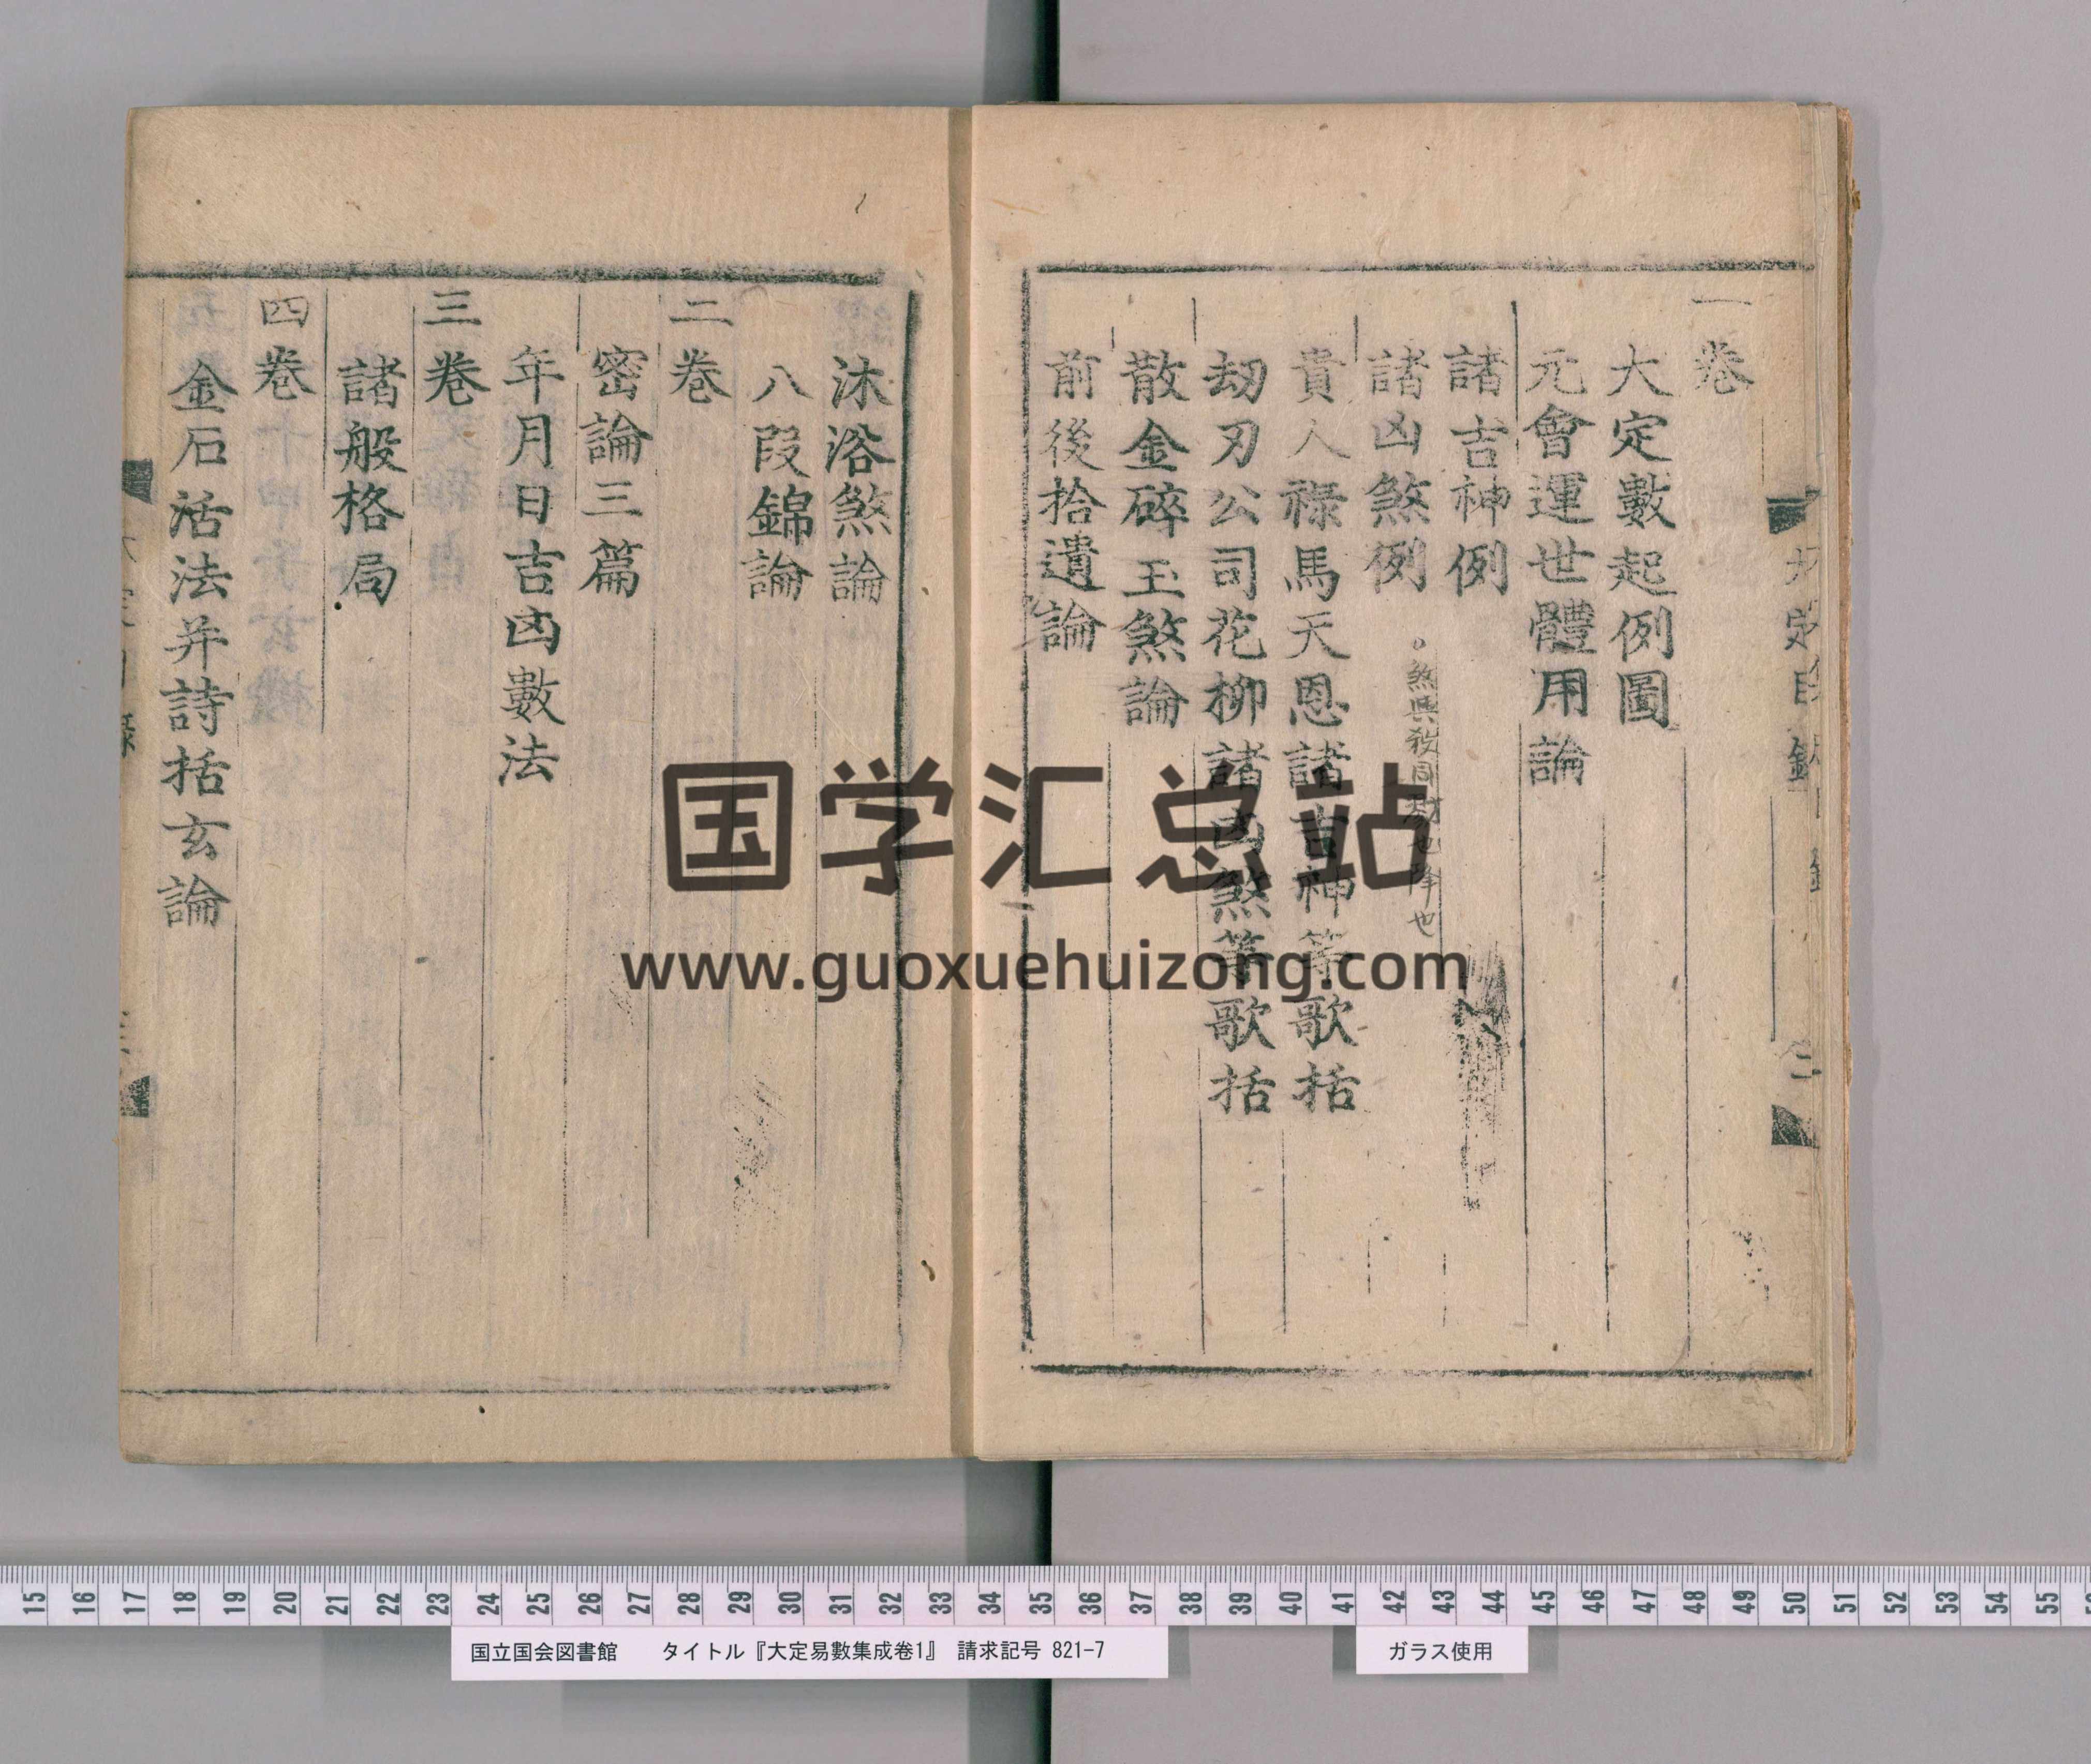 一卷
大定數起例圖
元會運世體用論
諸吉神例
諸凶煞例
貴人禄馬天恩諸吉神等歌括
劫刃公司花柳諸凶煞等歌括
散金碎玉煞論
前後拾遺論
沐浴煞論
八段錦論
二卷
密論三篇
年月日吉凶數法
三卷
諸般格局
四卷
金石活法并詩括玄論
国学汇总站
www.guoxuehuizong.com
15 16 17 18 19 20 21 22 23 24 25 26 27 28 29 30 31 32 33 34 35 36 37 38 39 40 41 42 43 44 45 46 47 48 49 50 51 52 53 54 55
国立国会図書館 タイトル『大定易數集成卷1』 請求記号 821-7
ガラス使用